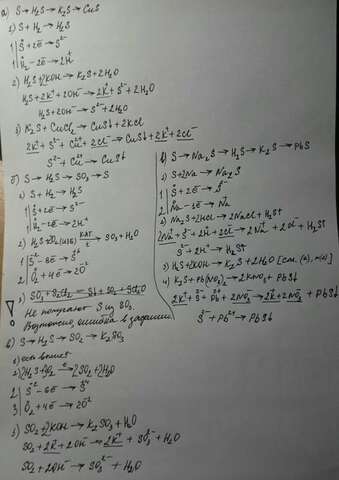 а) S → H₂S → K₂S → CuS
1) S + H₂ → H₂S
1 | S⁰ + 2ē → S²⁻
1 | H₂⁰ − 2ē → 2H⁺
2) H₂S + 2KOH → K₂S + 2H₂O
H₂S + 2K⁺ + 2OH⁻ → 2K⁺ + S²⁻ + 2H₂O
H₂S + 2OH⁻ → S²⁻ + 2H₂O
3) K₂S + CuCl₂ → CuS↓ + 2KCl
2K⁺ + S²⁻ + Cu²⁺ + 2Cl⁻ → CuS↓ + 2K⁺ + 2Cl⁻
S²⁻ + Cu²⁺ → CuS↓
б) S → H₂S → SO₃ → S
1) S + H₂ → H₂S
1 | S⁰ + 2ē → S²⁻
1 | H₂⁰ − 2ē → 2H⁺
КАТ
1 | S⁻² − 8ē → S⁺⁶
2 | O₂⁰ + 4ē → 2O⁻²
Не получают S из SO₃.
Возможно, ошибка в задании
в) S → H₂S → SO₂ → K₂SO₃
1) есть выше
2) 2H₂S + 3O₂ → 2SO₂ + 2H₂O
2 | S⁻² − 6ē → S⁺⁴
3 | O₂⁰ + 4ē → 2O⁻²
3) SO₂ + 2KOH → K₂SO₃ + H₂O
SO₂ + 2K⁺ + 2OH⁻ → 2K⁺ + SO₃²⁻ + H₂O
SO₂ + 2OH⁻ → SO₃²⁻ + H₂O
S → Na₂S → H₂S → K₂S → PbS
1) S + 2Na → Na₂S
1 | S⁰ + 2ē → S²⁻
2 | Na⁰ − 1ē → Na⁺
2) Na₂S + 2HCl → 2NaCl + H₂S↑
2Na⁺ + S²⁻ + 2H⁺ + 2Cl⁻ → 2Na⁺ + 2Cl⁻ + H₂S↑
S²⁻ + 2H⁺ → H₂S↑
3) H₂S + 2KOH → K₂S + 2H₂O
4) K₂S + Pb(NO₃)₂ → 2KNO₃ + PbS↓
2K⁺ + S²⁻ + Pb²⁺ + 2NO₃⁻ → 2K⁺ + 2NO₃⁻ + PbS↓
S²⁻ + Pb²⁺ → PbS↓